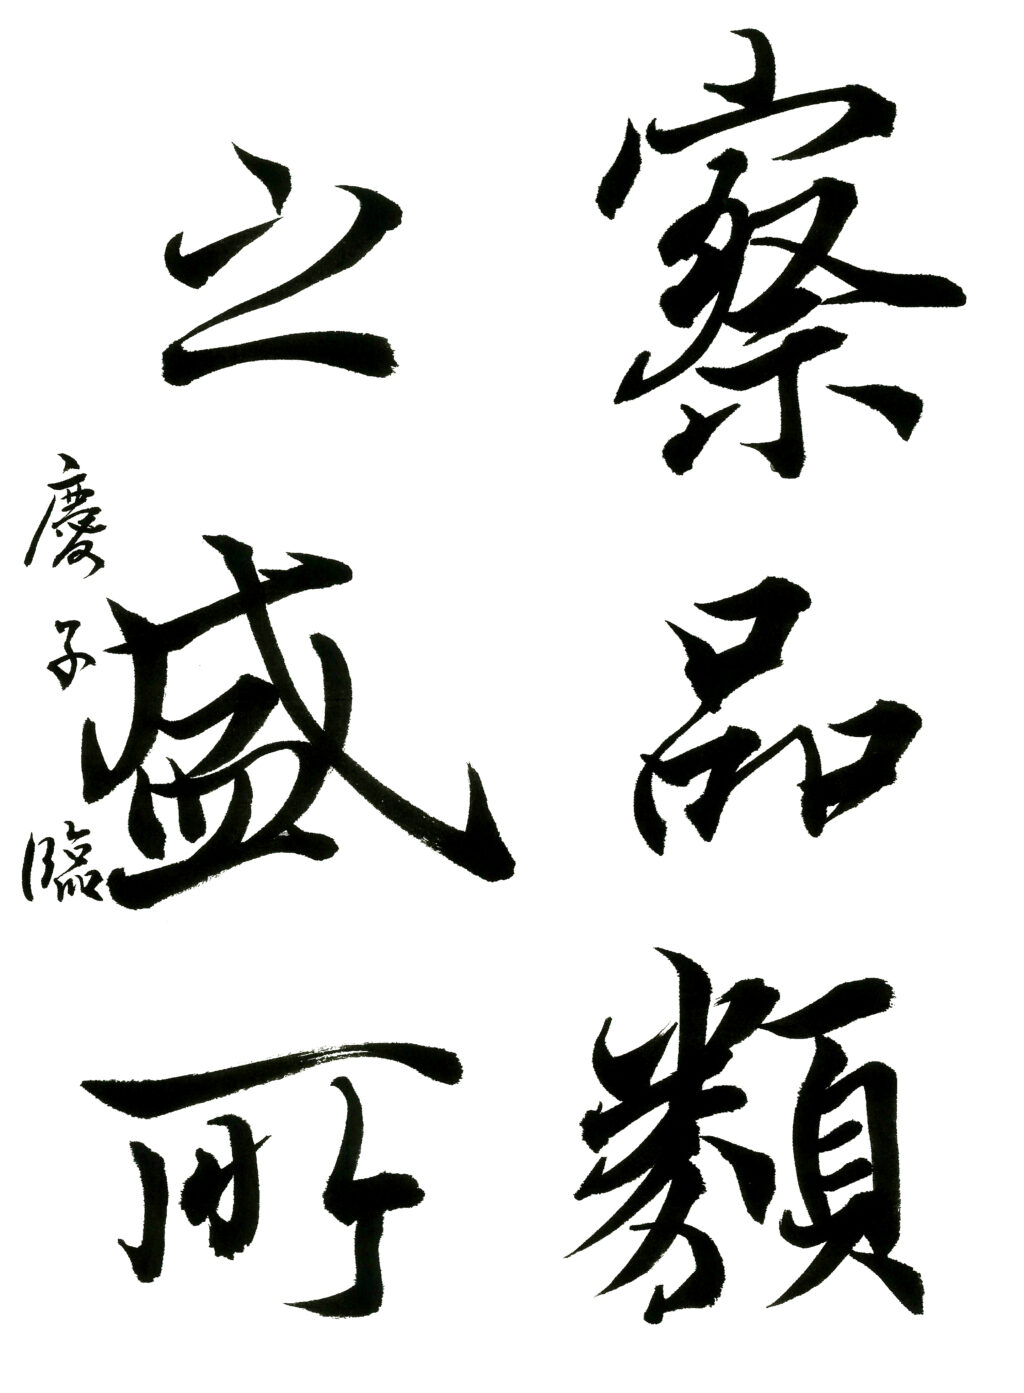 察品類
之盛所
慶子臨